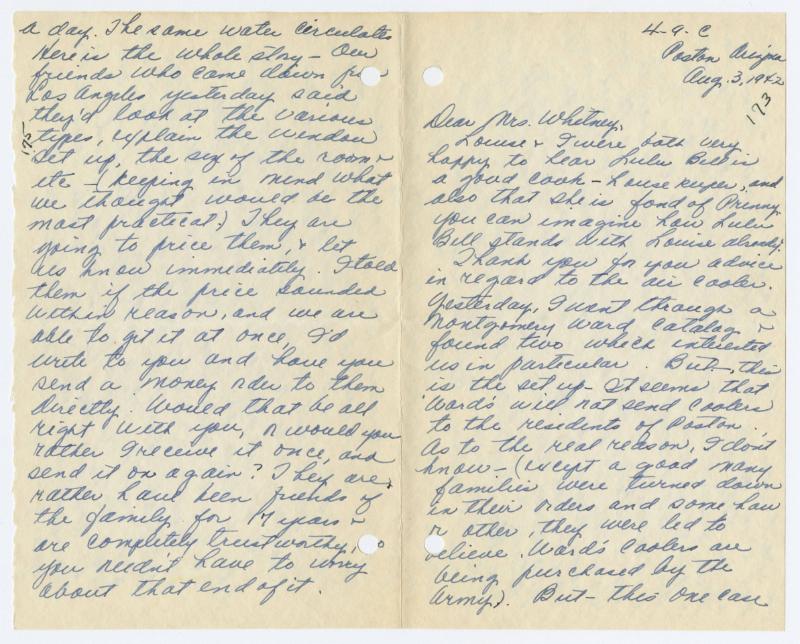 4-9-C
Poston Arizona
Aug. 3, 1942
173
Dear Mrs. Whitney,
Louise & I were both very
happy to hear Lulu Bell is
a good cook - house keeper, and
also that she is fond of Prunny
you can imagine how Lulu
Bell stands with Louise already.
Thank you for you advice
in regard to the air cooler.
Yesterday, I went through a
Montgomery Ward Catalog &
found two which interested
us in particular. But -, this
is the set up - It seems that
Ward's will not send coolers
to the residents of Poston.
As to the real reason, I don't
know - (except a good many
families were turned down
in their orders and some how
or other, they were led to
believe Ward's coolers are
being purchased by the
Army). But - this one case
a day. The same water circulates
Here is the whole story - Our
friends who came down from
Los Angeles yesterday said
they'd look at the various
types, explain the window
175
set up, the size of the room &
etc - (keeping in mind what
we thought would be the
most practical.) They are
going to price them, & let
us know immediately. I told
them if the price sounded
within reason, and we are
able to get it at once, I'd
write to you and have you
send a money order to them
directly. Would that be all
right with you, or would you
rather I receive it once, and
send it on again? They are
rather have been friends of
the family for 17 years &
are completely trustworthy, so
you needn't have to worry
about that end of it.